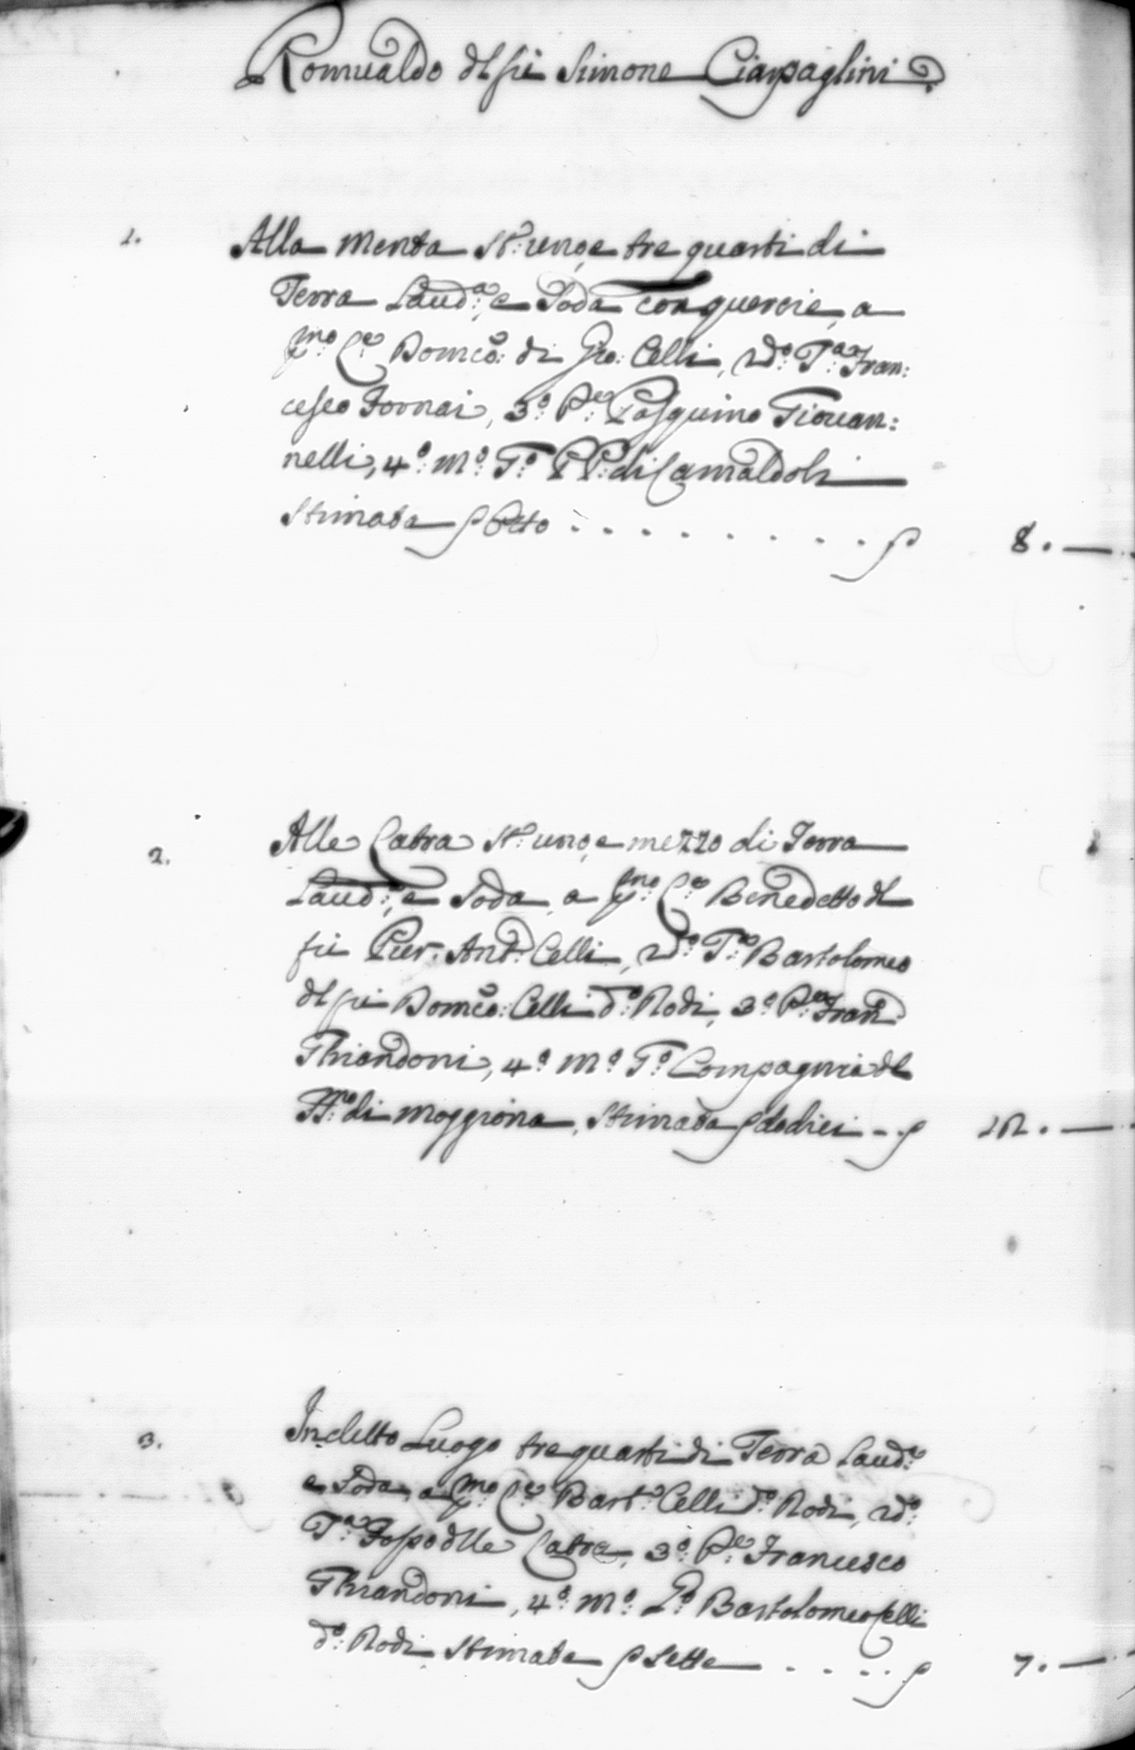 Romualdo dl fù Simone Ciapaglini
1. Alla Menta St: uno, e tre quarti di
Terra Laud:ª, e Soda con quercie, a
pmo: Ce Domco: di Gio: Celli, 2do: Tª: Fran:
cesco Fornai, 3º: Pe: Pasquino Giovan:
nelli, 4º: Mº: Tº: PP: di Camaldoli
Stimata Otto . . . . . . . . . 8. —
2. Alle Catra St: uno, e mezzo di Terra
Laud:ª, e Soda, a pmo: Ce Benedetto dl
fù Pier: Antº: Celli, 2do: Tª: Bartolomeo
dl fù Domco: Celli dº: Rodi, 3º: Pe: Franº
Ghiandoni, 4º: Mº: Tº: Compagnia dl
di Moggiona, Stimata dodici - . 12. —
3. In detto Luogo tre quarti di Terra Laudª:
e Soda, a pmo: Ce Bartº: Celli dº: Rodi, 2do:
Tª: Fosso dlle Catra, 3º: Pe: Francesco
Ghiandoni, 4º: Mº: Bartolomeo Celli
dº: Rodi Stimata Sette . . . . . 7. —